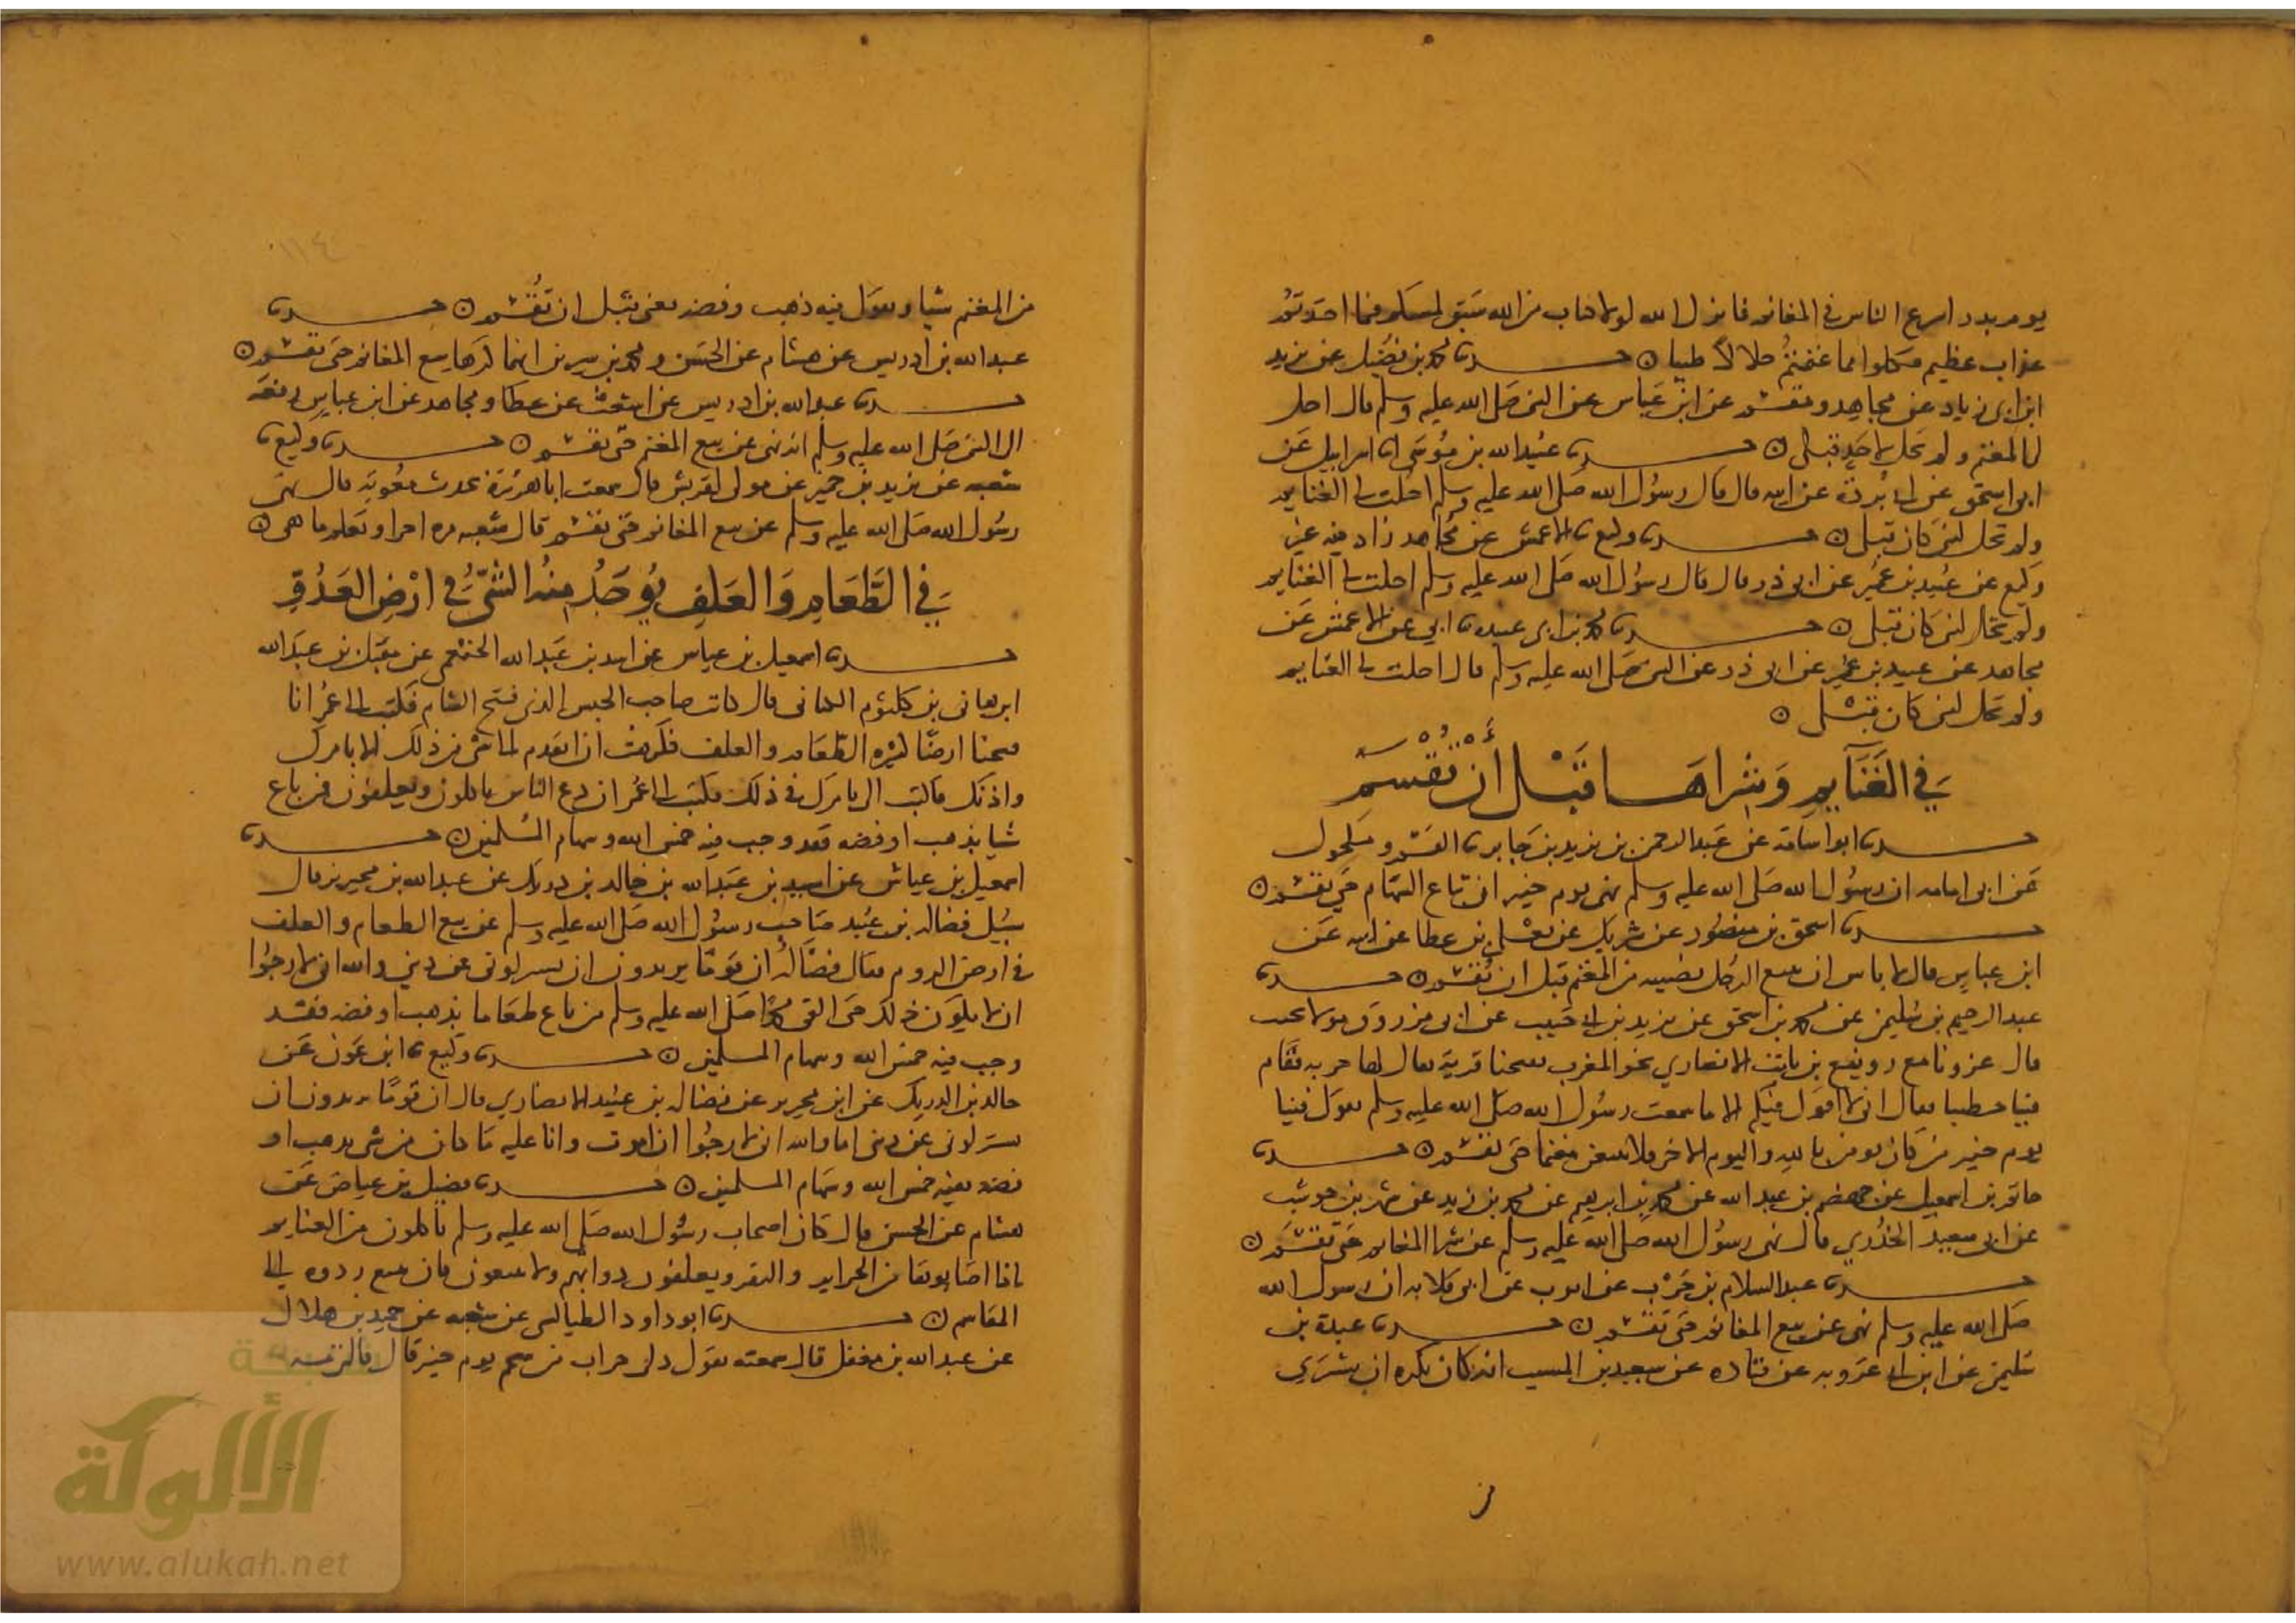 يوم بدر اسرع الناس في المغانم فانزل الله لولا كتاب من الله سبق لمسكم فيما اخذتم
عذاب عظيم فكلوا مما غنمتم حلالا طيبا ن حدثنا محمد بن فضيل عن يزيد
ابن ابي زياد عن مجاهد ومقسم عن ابن عباس عن النبي صلى الله عليه وسلم قال احل
لي المغنم ولم تحل لاحد قبلي ن حدثنا عبيد الله بن موسى انا اسرائيل عن
ابي اسحق عن ابي بردة عن ابيه قال قال رسول الله صلى الله عليه وسلم احلت لي الغنايم
ولم تحل لنبي كان قبلي ن حدثنا وكيع ثنا الاعمش عن مجاهد زاد فيه غير
وكيع عن عبيد بن عمير عن ابي ذر قال قال رسول الله صلى الله عليه وسلم احلت لي الغنايم
ولم تحل لنبي كان قبلي ن حدثنا محمد بن ابي عبيدة ثنا ابي عن الاعمش عن
مجاهد عن عبيد بن عمير عن ابي ذر عن النبي صلى الله عليه وسلم قال احلت لي الغنايم
ولم تحل لنبي كان قبلي ن
في الغنايم وشراها قبل أن تقسم
حدثنا ابو اسامة عن عبد الرحمن بن يزيد بن جابر ثنا القسم ومكحول
عن ابي امامه ان رسول الله صلى الله عليه وسلم نهى يوم خيبر ان تباع السهام حتى تقسم ن
حدثنا اسحق بن منصور عن شريك عن يعلى بن عطا عن ابيه عن
ابن عباس قال لا باس ان يبيع الرجل نصيبه من المغنم قبل ان تقسم ن حدثنا
عبد الرحيم بن سليمن عن محمد بن اسحق عن يزيد بن ابي حبيب عن ابي مرزوق مولى تجيب
قال غزونا مع رويفع بن ثابت الانصاري نحو المغرب ففتحنا قرية يقال لها جربه فقام
فينا خطيبا فقال اني لا اقول فيكم الا ما سمعت رسول الله صلى الله عليه وسلم يقول فينا
يوم خيبر من كان يومن بالله واليوم الاخر فلا يبيعن مغنما حتى تقسم ن حدثنا
حاتم بن اسمعيل عن جهضم بن عبد الله عن محمد بن ابرهيم عن محمد بن زيد عن شهر بن حوشب
عن ابي سعيد الخدري قال نهى رسول الله صلى الله عليه وسلم عن شرا المغانم حتى تقسم ن
حدثنا عبد السلام بن حرب عن ايوب عن ابي قلابه ان رسول الله
صلى الله عليه وسلم نهى عن بيع المغانم حتى تقسم ن حدثنا عبدة بن
سليمن عن ابن ابي عروبه عن قتاده عن سعيد بن المسيب انه كان يكره ان يشتري
من
١١٤
من المغنم شيا ويقول فيه ذهب وفضه يعني قبل ان تقسم ن حدثنا
عبد الله بن ادريس عن هشام عن الحسن ومحمد بن سيرين انهما كرها بيع المغانم حتى تقسم ن
حدثنا عبد الله بن ادريس عن اشعث عن عطا ومجاهد عن ابن عباس رفعه
الى النبي صلى الله عليه وسلم انه نهى عن بيع المغنم حتى تقسم ن حدثنا وكيع ثنا
شعبه عن يزيد بن خمير عن مولى لقريش قال سمعت ابا هريرة يحدث معوية قال نهى
رسول الله صلى الله عليه وسلم عن بيع المغانم حتى تقسم قال شعبه مره اخرا وتعلم ما هي ن
في الطعام والعلف يوجد منه الشي في ارض العدو
حدثنا اسمعيل بن عياش عن اسيد بن عبد الله الخثعمي عن مقبل بن عبد الله
ابن هاني بن كلثوم الكناني قال كان صاحب الجيش الذي فتح الشام فكتب الى عمر انا
فتحنا ارضا كثيره الطعام والعلف فكرهت ان اتقدم لشي من ذلك الا بامرك
واذنك فاكتب الي بامرك في ذلك فكتب اليه عمر ان دع الناس ياكلون ويعلفون فمن باع
شيا بذهب او فضه فقد وجب فيه خمس الله وسهام المسلمين ن حدثنا
اسمعيل بن عياش عن اسيد بن عبد الله بن خالد بن دريك عن عبد الله بن محيريز قال
سيل فضاله بن عبيد صاحب رسول الله صلى الله عليه وسلم عن بيع الطعام والعلف
في ارض الروم فقال فضالة ان قوما يريدون ان يستزلوني عن ديني والله اني لارجوا
ان لا يكون ذلك حتى القى محمدا صلى الله عليه وسلم من باع طعاما بذهب او فضه فقد
وجب فيه خمس الله وسهام المسلمين ن حدثنا وكيع ثنا ابن عون عن
خالد بن الدريك عن ابن محيريز عن فضاله بن عبيد الانصاري قال ان قوما يريدون ان
يستزلوني عن ديني اما والله اني لارجوا ان اموت وانا عليه ما كان من شي بذهب او
فضه ففيه خمس الله وسهام المسلمين ن حدثنا فضيل بن عياض عن
هشام عن الحسن قال كان اصحاب رسول الله صلى الله عليه وسلم ياكلون من الغنايم
اذا اصابوها من الجزاير والبقر ويعلفون دوابهم ولا يبيعون فان بيع ردوه الى
المقاسم ن حدثنا ابو داود الطيالسي عن شعبه عن حميد بن هلال
عن عبد الله بن مغفل قال سمعته يقول دلي جراب من شحم يوم خيبر قال فالتزمته
شبكة
الألوكة
www.alukah.net